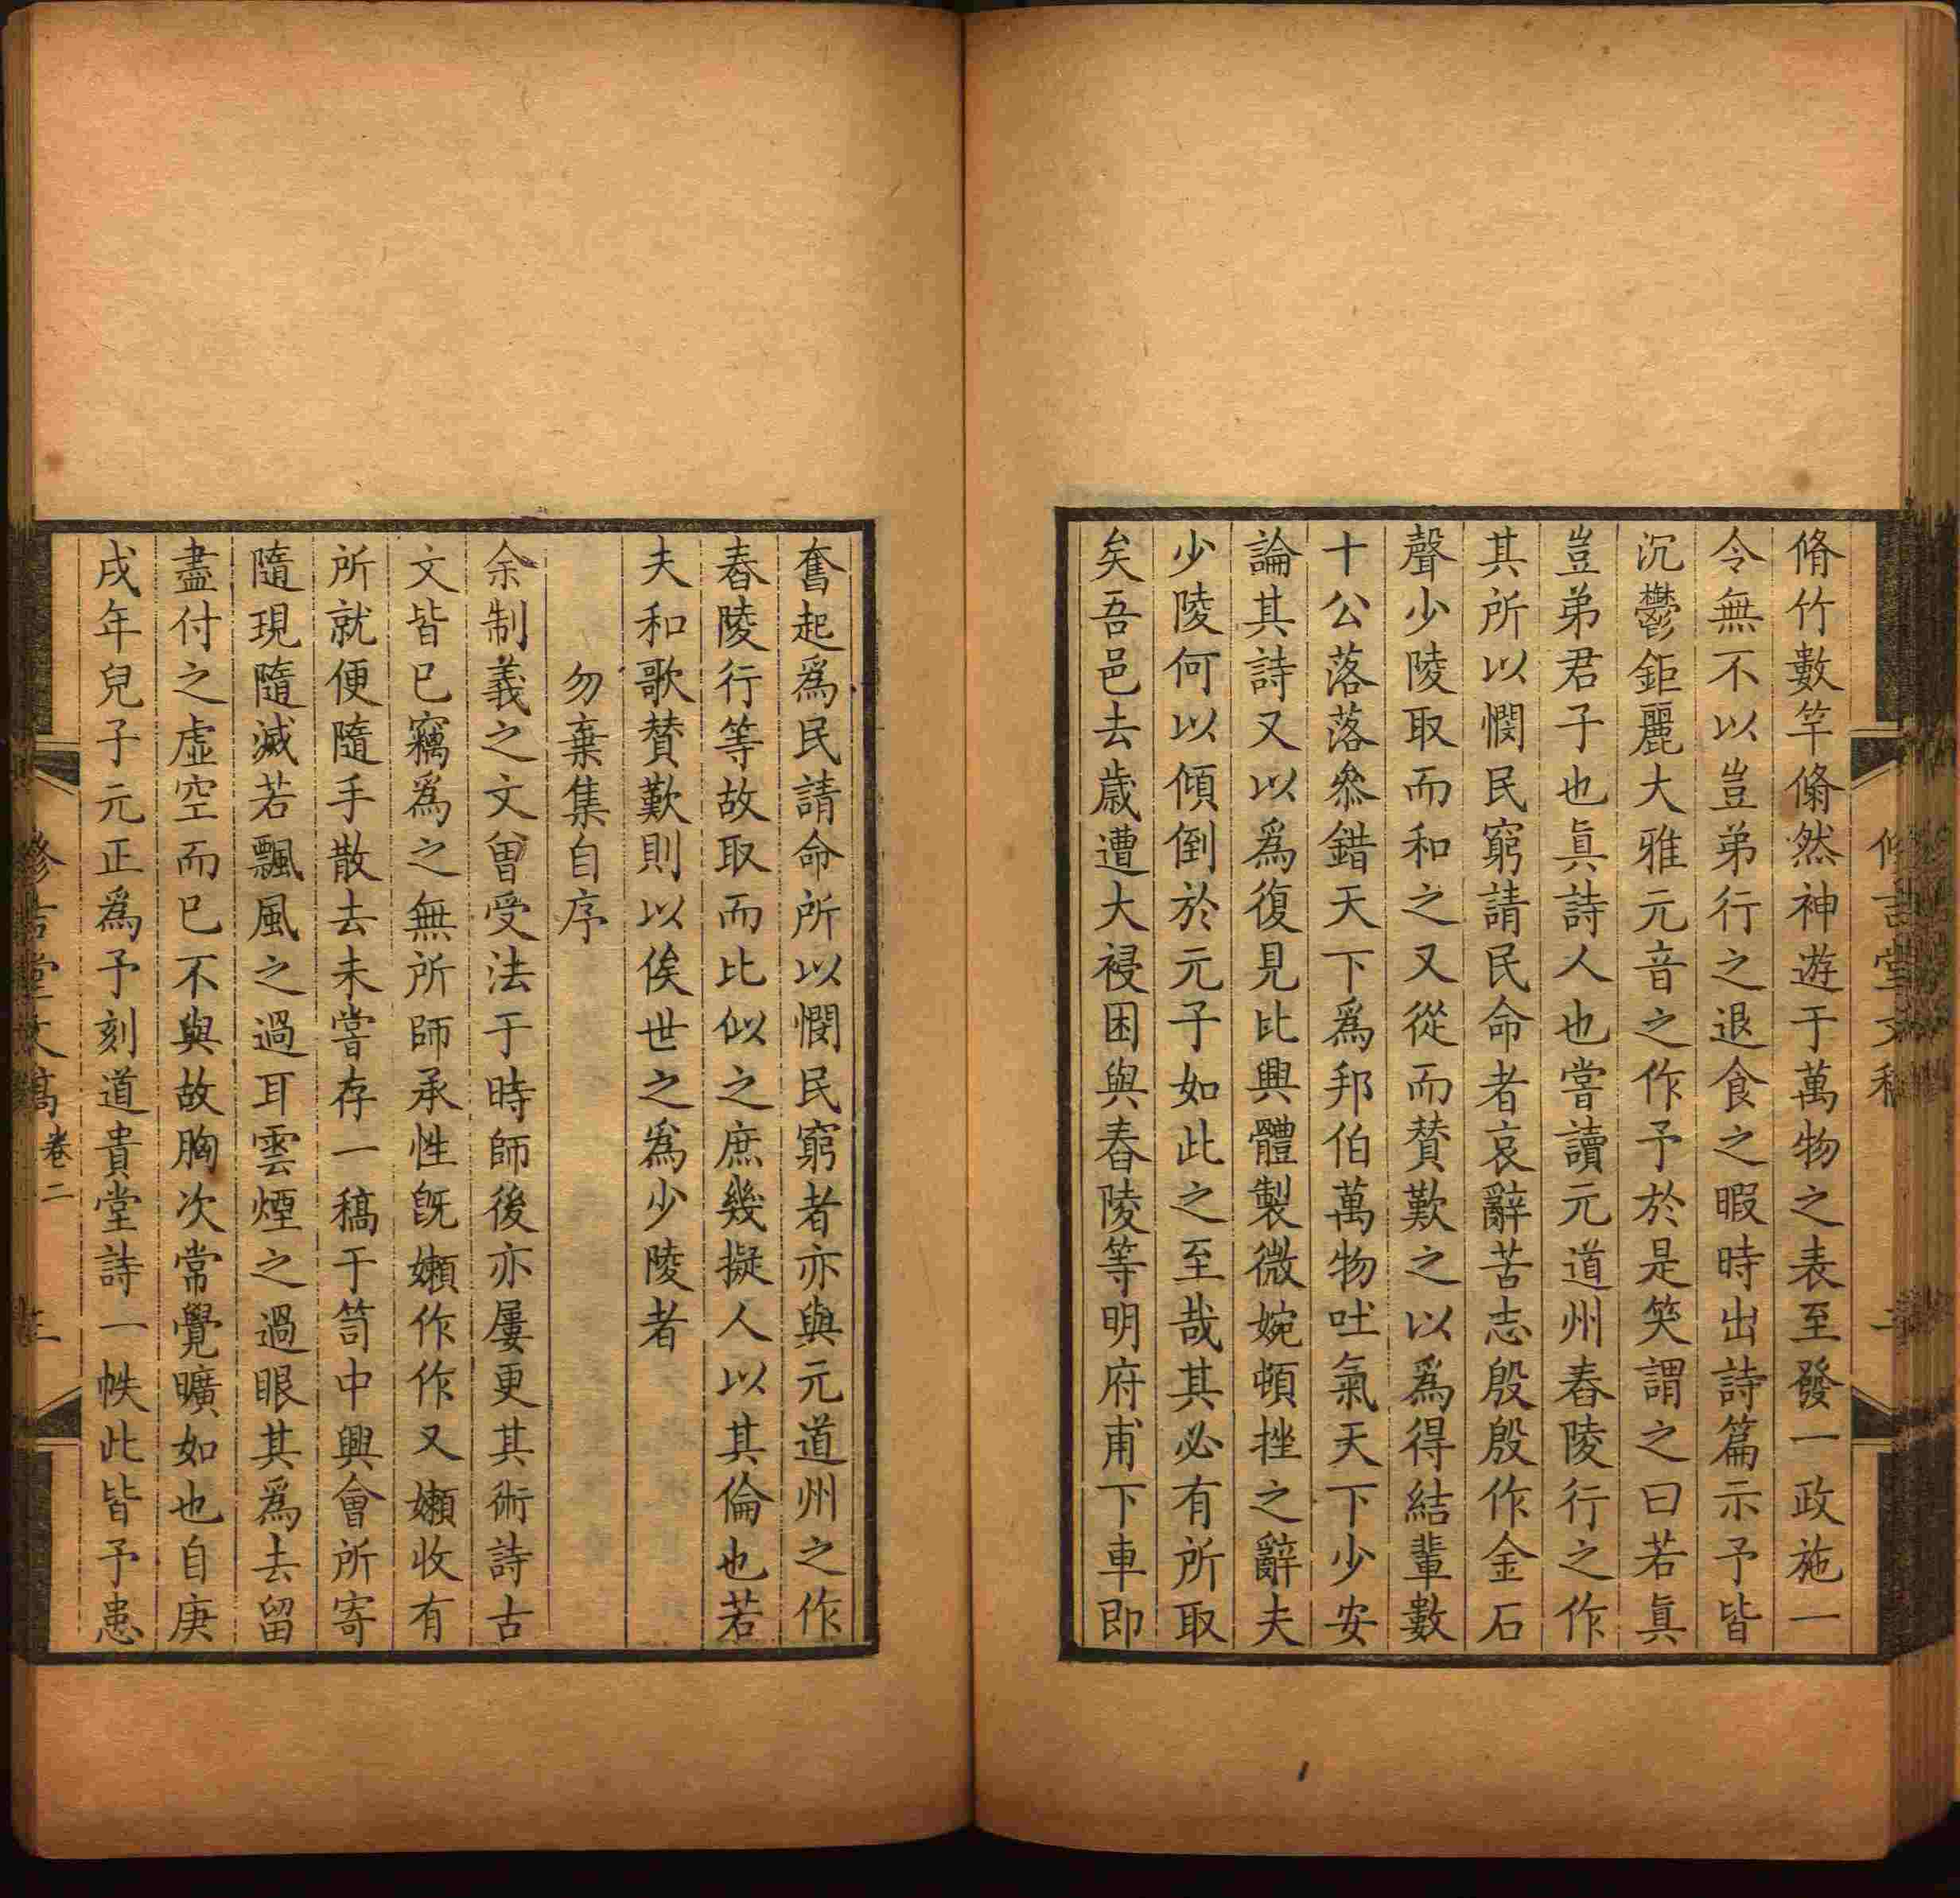 脩竹數竿翛然神遊于萬物之表至發一政施一
令無不以豈弟行之退食之暇時出詩篇示予皆
沉鬱鉅麗大雅元音之作予於是笑謂之曰若眞
豈弟君子也眞詩人也嘗讀元道州舂陵行之作
其所以憫民窮請民命者哀辭苦志殷殷作金石
聲少陵取而和之又從而賛歎之以爲得結輩數
十公落落叅錯天下爲邦伯萬物吐氣天下少安
論其詩又以爲復見比興體製微婉頓挫之辭夫
少陵何以傾倒於元子如此之至哉其必有所取
矣吾邑去歲遭大祲困與舂陵等明府甫下車即
奮起爲民請命所以憫民窮者亦與元道州之作
舂陵行等故取而比似之庶幾擬人以其倫也若
夫和歌賛歎則以俟世之爲少陵者
勿棄集自序
余制義之文曾受法于時師後亦屢更其術詩古
文皆已竊爲之無所師承性旣嬾作作又嬾收有
所就便隨手散去未嘗存一稿于笥中興會所寄
隨現隨滅若飄風之過耳雲煙之過眼其爲去留
盡付之虛空而已不與故胸次常覺曠如也自庚
戌年兒子元正爲予刻道貴堂詩一帙此皆予患
修吉堂文稿
卷二
三